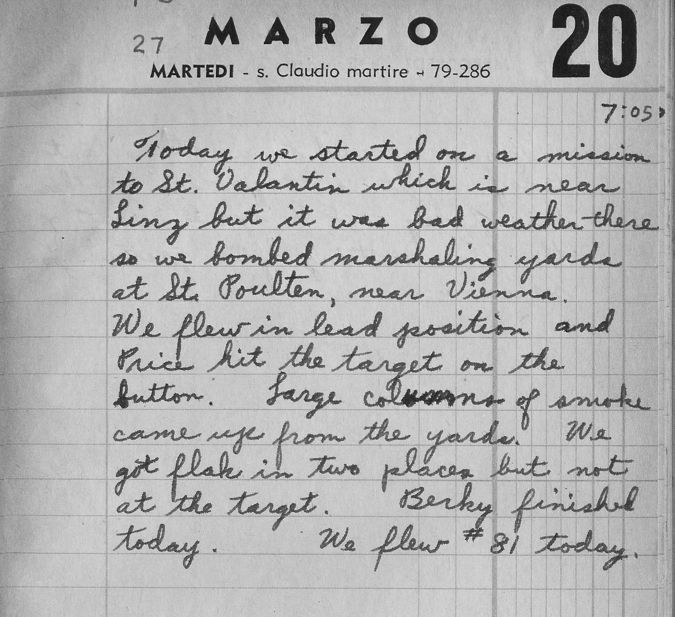 27
MARZO
20
MARTEDI - s. Claudio martire - 79-286
7:05
Today we started on a mission
to St. Valantin which is near
Linz but it was bad weather there
so we bombed marshaling yards
at St. Poulten, near Vienna.
We flew in lead position and
Price hit the target on the
button. Large columns of smoke
came up from the yards. We
got flak in two places but not
at the target. Berky finished
today. We flew #81 today.